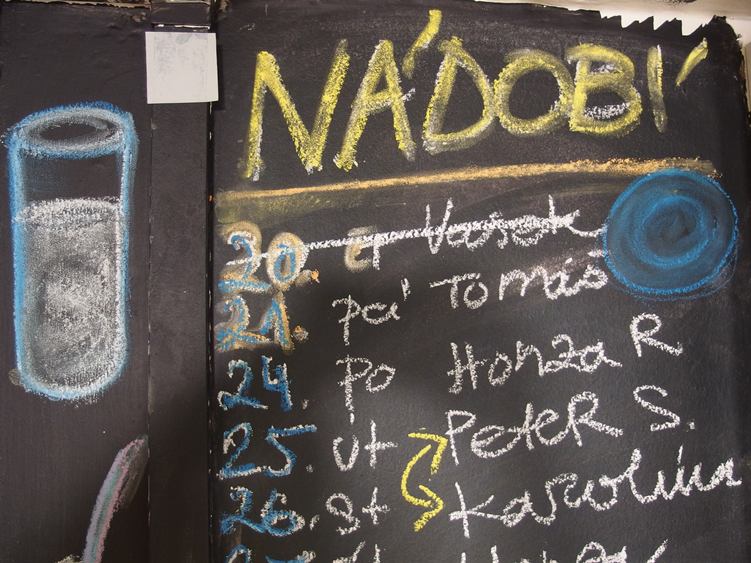 NÁDOBÍ
20 čt Vašek
21. pá Tomáš
24. Po Honza R
25. út PeteR S.
26. st Karolína